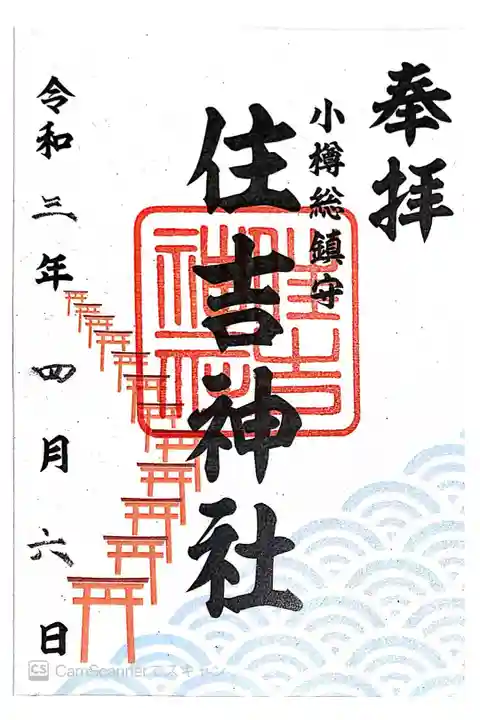 奉拝
小樽総鎮守
住吉神社
住吉神社
令和三年四月六日
CS CamScannerでスキャン